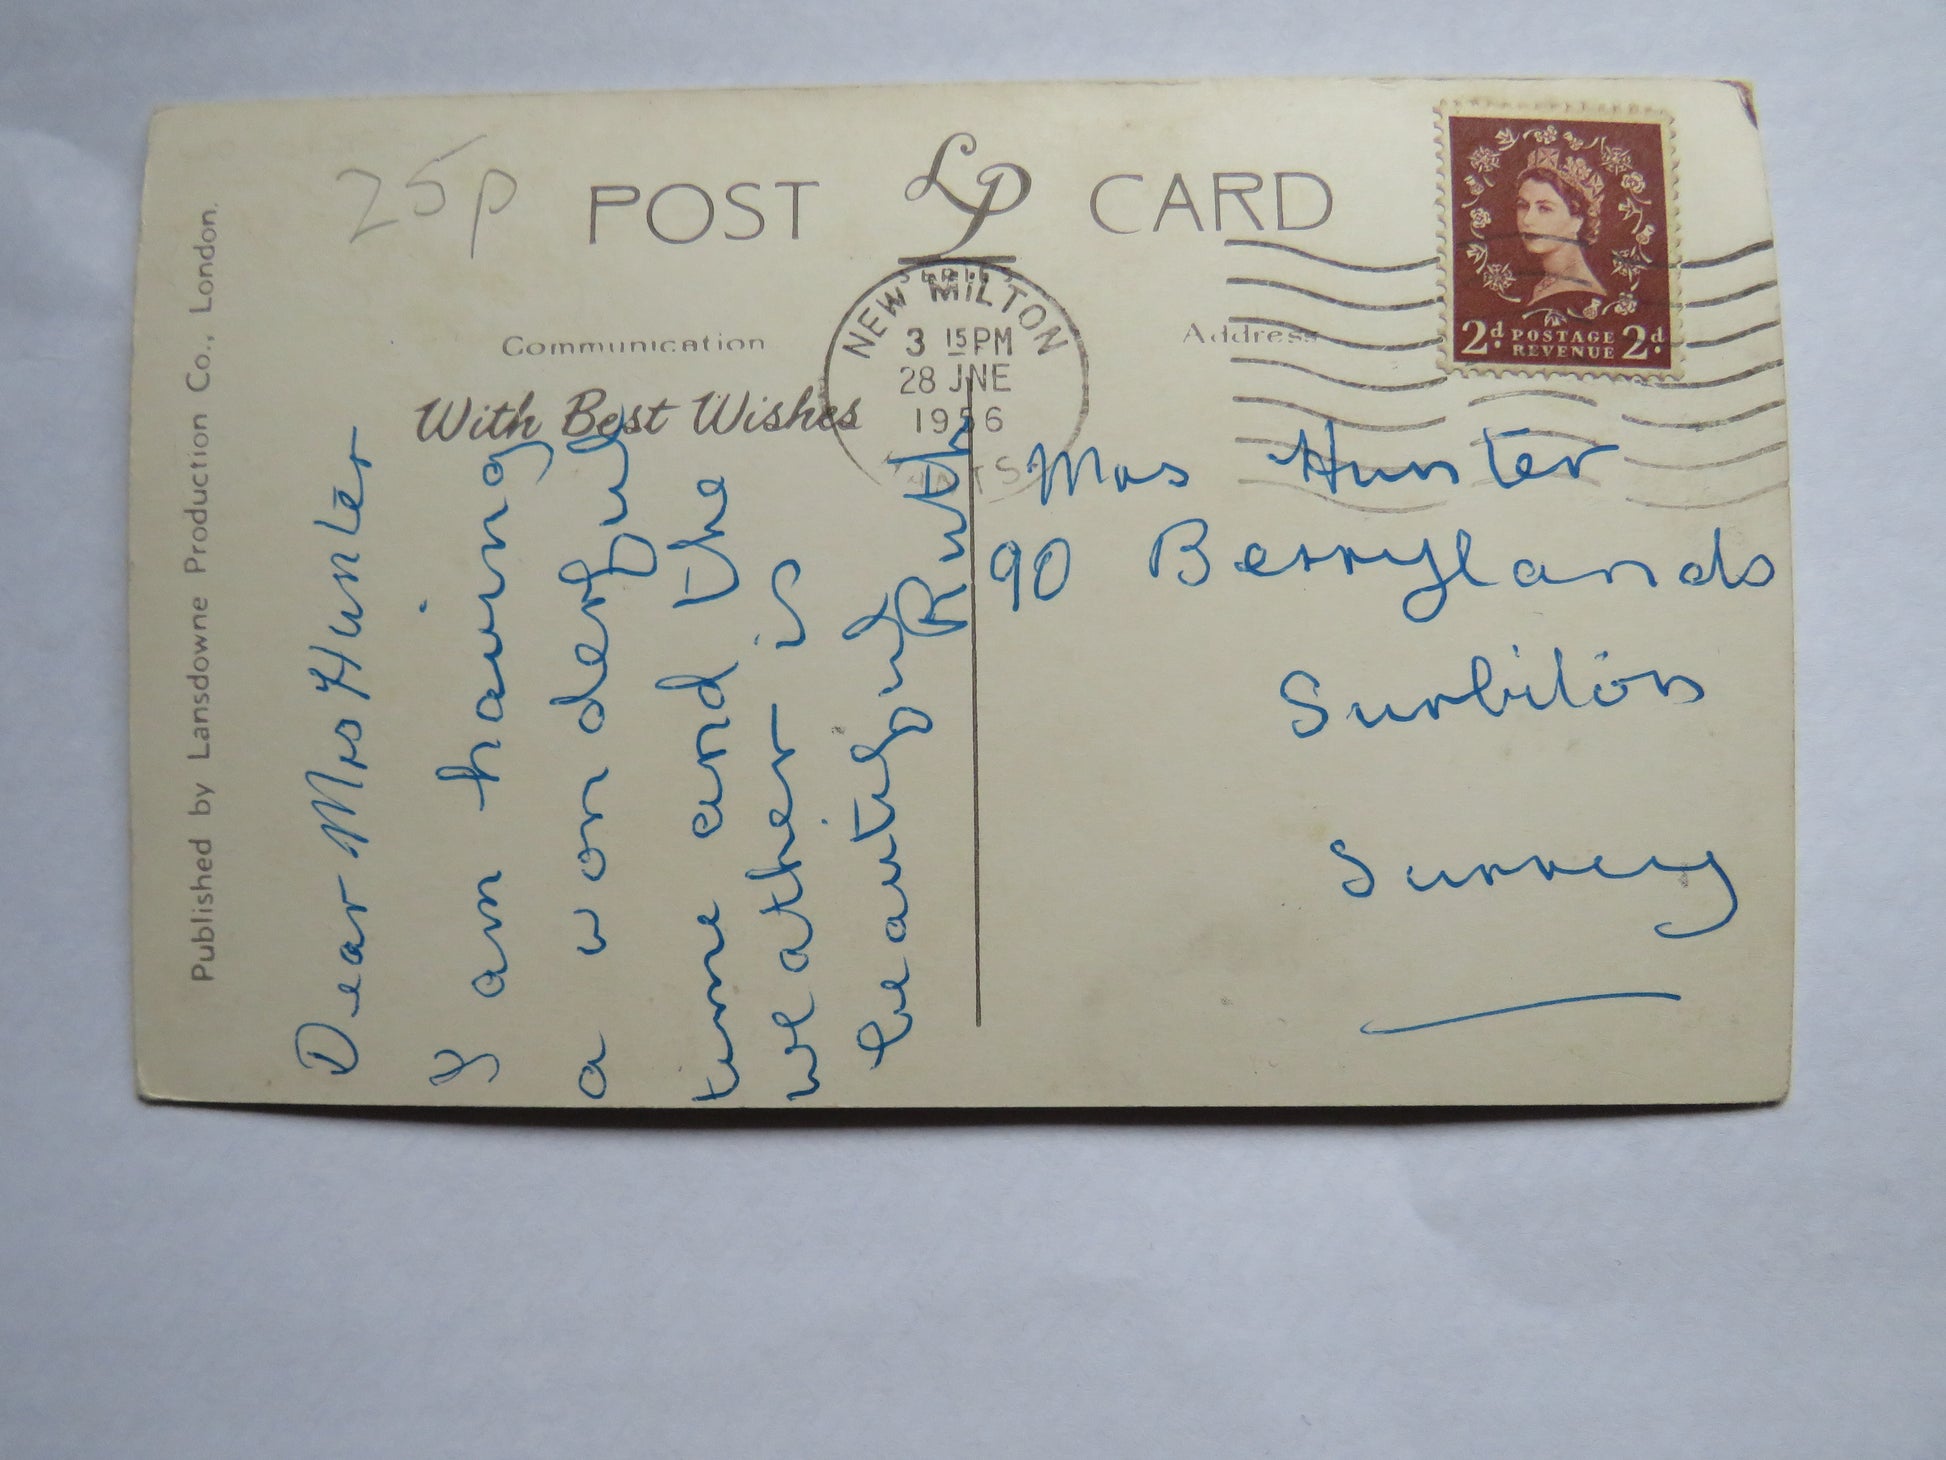 25p
POST LP CARD
SERIES
NEW MILTON
3 15 PM
28 JNE
1956
HANTS.
2d. POSTAGE REVENUE 2d.
Communication
Address
With Best Wishes
Dear Mrs Hunter
I am having
a wonderful
time and the
weather is
beautiful
Ruth
Mrs Hunter
90 Berrylands
Surbiton
Surrey
Published by Lansdowne Production Co., London.